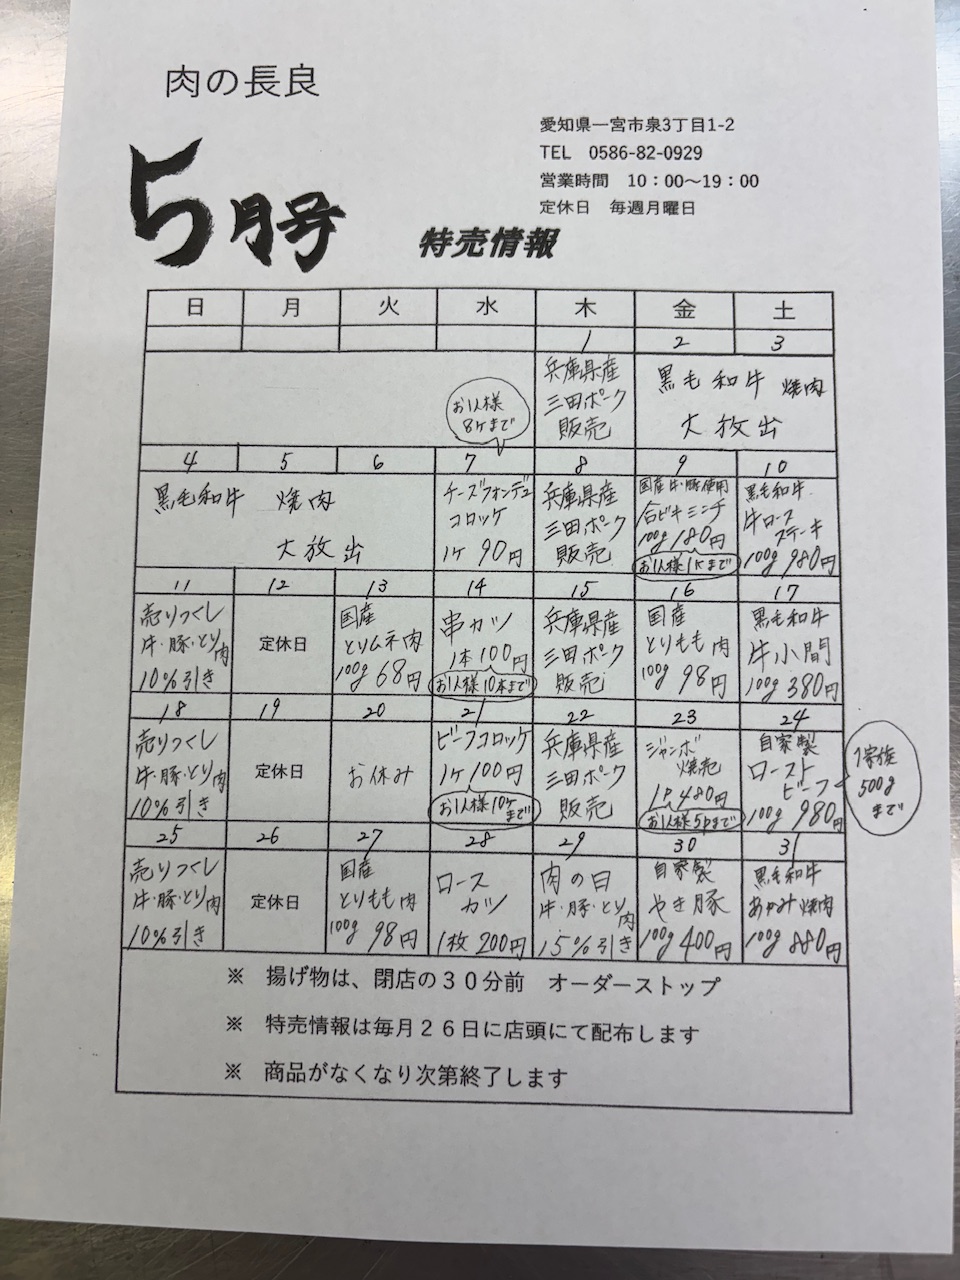 肉の長良
5月号
特売情報
愛知県一宮市泉3丁目1-2
TEL 0586-82-0929
営業時間 10：00～19：00
定休日 毎週月曜日
日 月 火 水 木 金 土
1 2 3
お1人様
8ヶまで
兵庫県産
三田ポーク
販売
黒毛和牛 焼肉
大放出
4 5 6 7 8 9 10
黒毛和牛 焼肉
大放出
チーズフォンデュ
コロッケ
1ヶ 90円
兵庫県産
三田ポーク
販売
国産牛・豚使用
合ビキミンチ
100g 180円
お1人様1Kまで
黒毛和牛
牛ロース
ステーキ
100g 980円
11 12 13 14 15 16 17
売りつくし
牛・豚・とり肉
10%引き
定休日
国産
とりムネ肉
100g 68円
串カツ
1本100円
お1人様10本まで
兵庫県産
三田ポーク
販売
国産
とりもも肉
100g 98円
黒毛和牛
牛小間
100g 380円
18 19 20 21 22 23 24
売りつくし
牛・豚・とり肉
10%引き
定休日
お休み
ビーフコロッケ
1ヶ100円
お1人様10ヶまで
兵庫県産
三田ポーク
販売
ジャンボ
焼売
1P 480円
お1人様5pまで
自家製
ロースト
ビーフ
100g 980円
1家族
500g
まで
25 26 27 28 29 30 31
売りつくし
牛・豚・とり肉
10%引き
定休日
国産
とりもも肉
100g 98円
ロース
カツ
1枚 200円
肉の日
牛・豚・とり肉
15%引き
自家製
やき豚
100g 400円
黒毛和牛
あかみ焼肉
100g 880円
※ 揚げ物は、閉店の３０分前 オーダーストップ
※ 特売情報は毎月２６日に店頭にて配布します
※ 商品がなくなり次第終了します